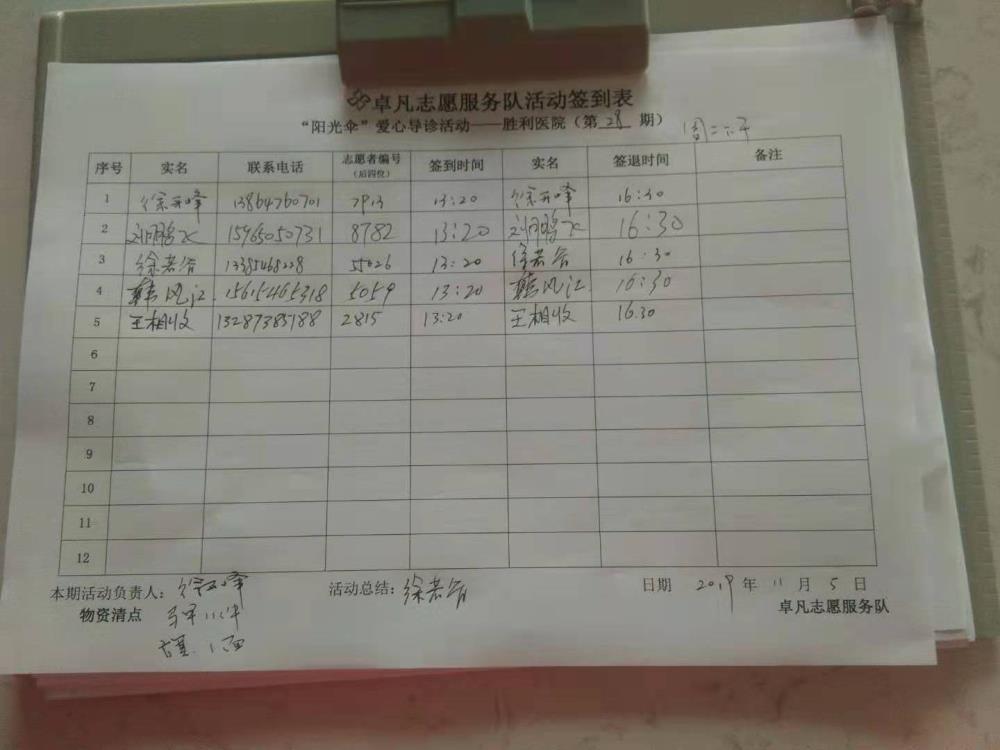 卓凡志愿服务队活动签到表
“阳光伞”爱心导诊活动——胜利医院（第28期）
周二下午
序号 实名 联系电话 志愿者编号（后四位） 签到时间 实名 签退时间 备注
1 徐 峰 13864760701 7913 13:20 徐 峰 16:30
2 刘鹏飞 15965050731 8782 13:20 刘鹏飞 16:30
3 徐若谷 13385468228 55026 13:20 徐若谷 16:30
4 韩风江 15615465318 5059 13:20 韩风江 16:30
5 王相收 13287385188 2815 13:20 王相收 16.30
6
7
8
9
10
11
12
本期活动负责人：徐 峰 活动总结：徐若谷 日期 2019年11月5日
物资清点 马甲 件 卓凡志愿服务队
旗 面